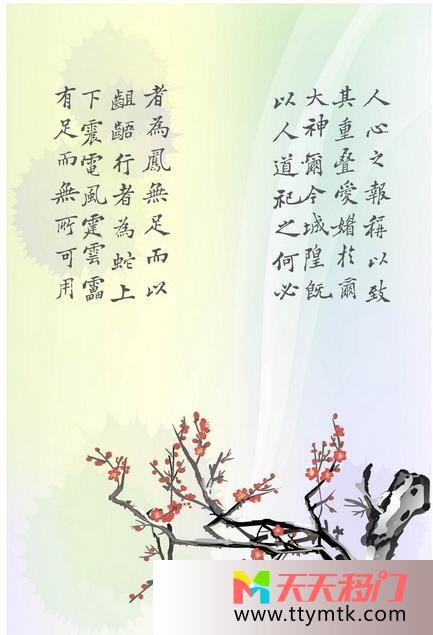 人心之報稱以致
其重疊愛媘於爾
大神爾今城隍旣
以人道祀之何必
者為鳳無足而以
齟齬行者為蛇上
下震電風霆雲靁
有足而無所可用
天天移门
www.ttymtk.com